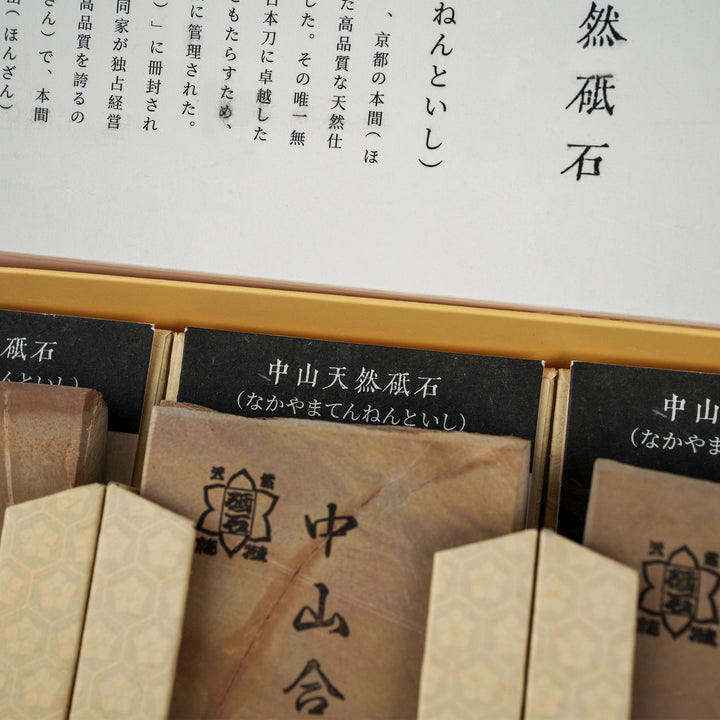 然砥石
ねんといし)
、京都の本間(ほ
た高品質な天然仕
した。その唯一無
日本刀に卓越した
もたらすため、
に管理された。
)」に冊封され
同家が独占経営
高品質を誇るの
さん)で、本間
(ほんざん)
砥石
んといし)
中山天然砥石
(なかやまてんねんといし)
中山
(なかやま
砥石
中山合
砥石